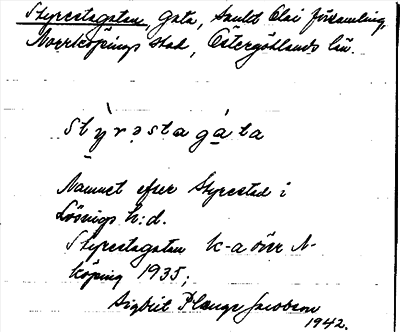 Styrestagatan, Gata, Sankt Olai församling,
Norrköpings stad, Östergötlands län.
stỳrəstagáta
Namnet efter Styrestad i
Lösings h:d.
Styrestagatan k-a över N-
köping 1935;
Sigbrit Plænge Jacobson
1942.